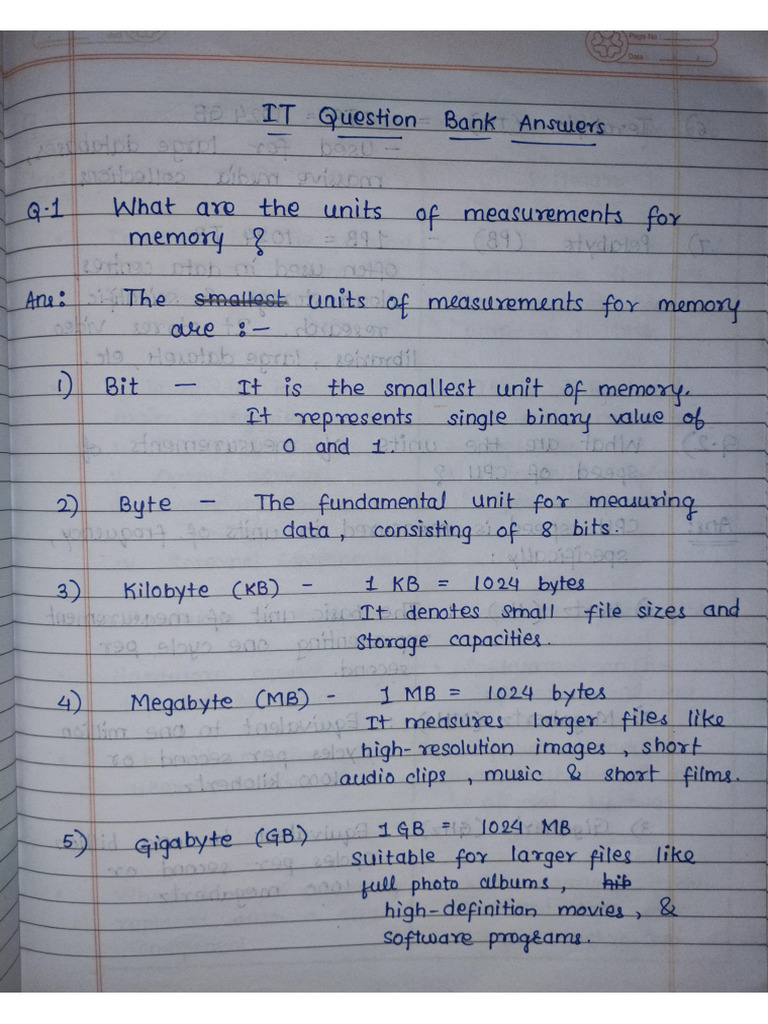 Page No :
Date :
IT Question Bank Answers
Q.1 What are the units of measurements for
memory ?
Ans: The smallest units of measurements for memory
are :-
1) Bit — It is the smallest unit of memory.
It represents single binary value of
0 and 1.
2) Byte — The fundamental unit for measuring
data, consisting of 8 bits.
3) Kilobyte (KB) - 1 KB = 1024 bytes
It denotes small file sizes and
storage capacities.
4) Megabyte (MB) - 1 MB = 1024 bytes
It measures larger files like
high-resolution images, short
audio clips, music & short films.
5) Gigabyte (GB) 1 GB = 1024 MB
suitable for larger files like
full photo albums,
high-definition movies, &
software programs.